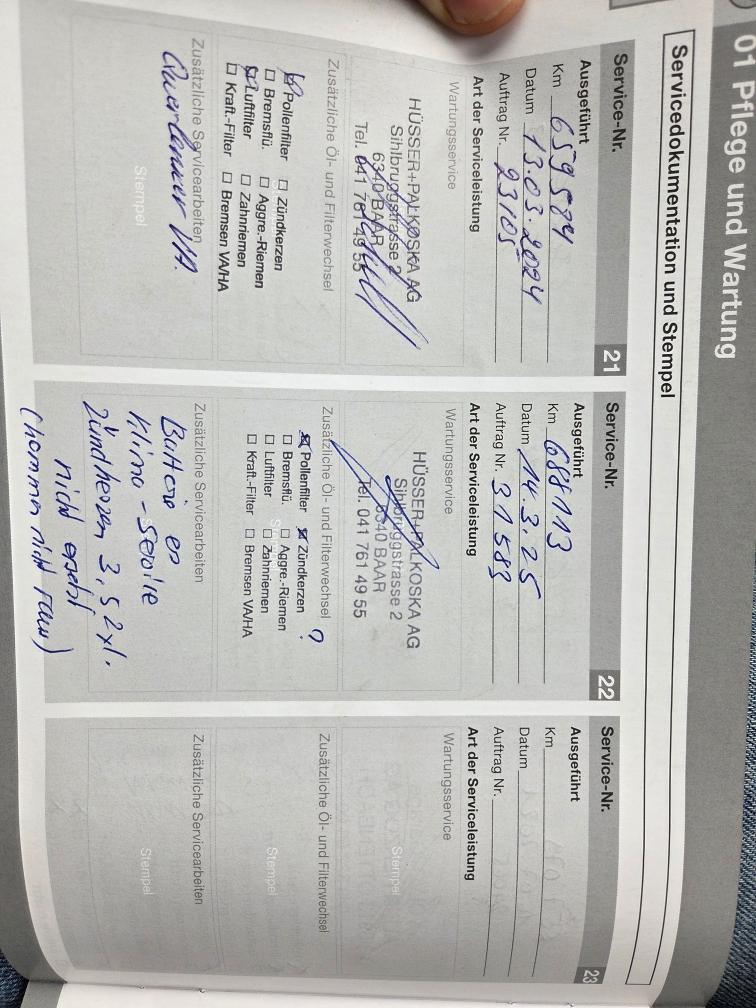 01 Pflege und Wartung
Servicedokumentation und Stempel
Service-Nr. 21
Ausgeführt
Km 659584
Datum 13.03.2024
Auftrag Nr. 23105
Art der Serviceleistung
Wartungsservice
HÜSSER+PALKOSKA AG
Sihlbruggstrasse 2
6340 BAAR
Tel. 041 761 49 55
Zusätzliche Öl- und Filterwechsel
Pollenfilter Zündkerzen
Bremsflü. Aggre.-Riemen
Luftfilter Zahnriemen
Kraft.-Filter Bremsen VA/HA
Zusätzliche Servicearbeiten
Querlenker VA.
Stempel
Service-Nr. 22
Ausgeführt
Km 688113
Datum 14.3.25
Auftrag Nr. 31583
Art der Serviceleistung
Wartungsservice
HÜSSER+PALKOSKA AG
Sihlbruggstrasse 2
6340 BAAR
Tel. 041 761 49 55
Zusätzliche Öl- und Filterwechsel
Pollenfilter Zündkerzen ?
Bremsflü. Aggre.-Riemen
Luftfilter Zahnriemen
Kraft.-Filter Bremsen VA/HA
Zusätzliche Servicearbeiten
Batterie er
Klima-Service
Zündkerzen 3, 5 2x1.
nicht ersetzt
(kommen nicht raus)
Service-Nr. 23
Ausgeführt
Km
Datum
Auftrag Nr.
Art der Serviceleistung
Wartungsservice
Stempel
Zusätzliche Öl- und Filterwechsel
Stempel
Zusätzliche Servicearbeiten
Stempel